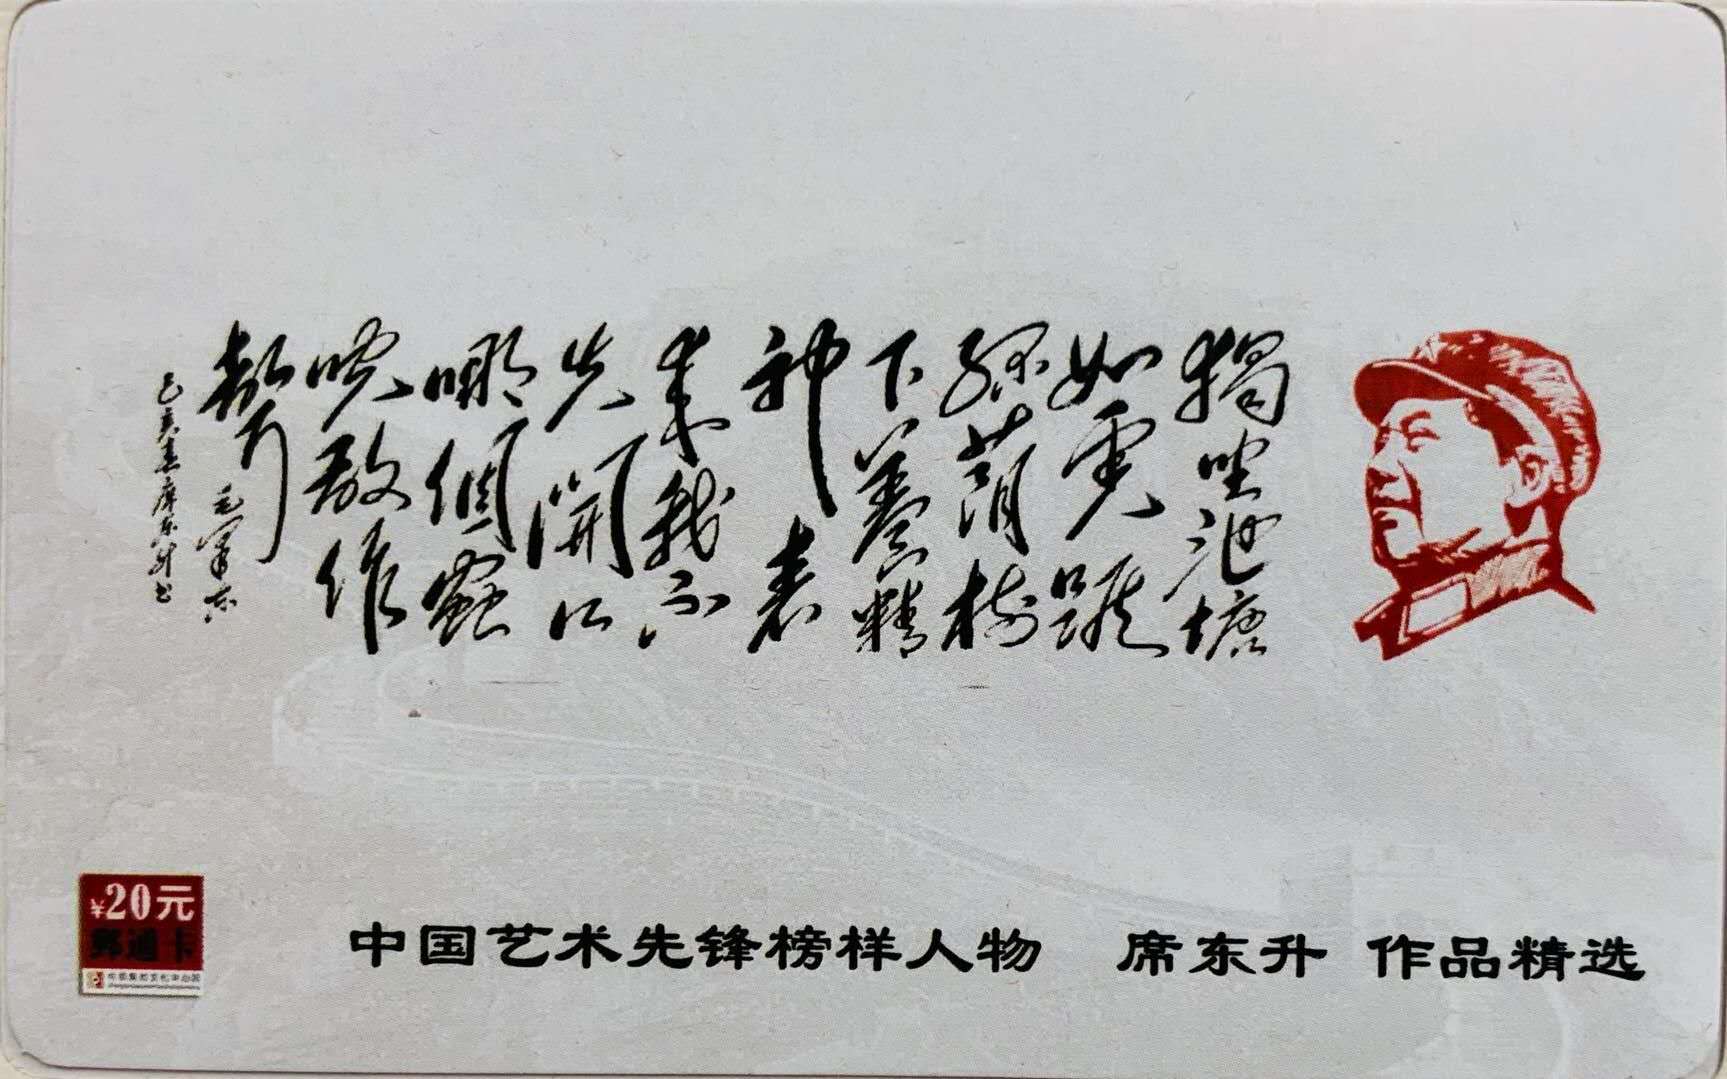 獨坐池塘
如虎踞
綠蔭樹
下養精
神春
來我不
先開口
哪個蟲
敢作
聲 毛澤東
己亥春席东升书
¥20元
郵通卡
中国艺术先锋榜样人物 席东升 作品精选